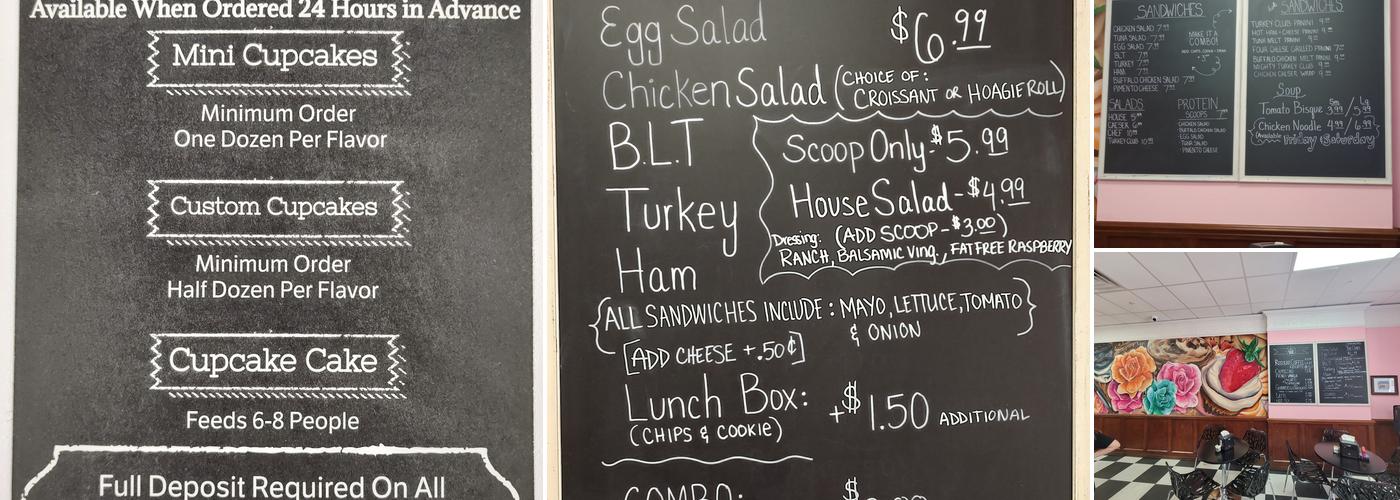 Available When Ordered 24 Hours in Advance
Mini Cupcakes
Minimum Order
One Dozen Per Flavor
Custom Cupcakes
Minimum Order
Half Dozen Per Flavor
Cupcake Cake
Feeds 6-8 People
Full Deposit Required On All
Egg Salad $6.99
Chicken Salad (CHOICE OF:
CROISSANT OR HOAGIE ROLL)
B.L.T
Turkey
Ham
Scoop Only-$5.99
House Salad-$4.99
(ADD SCOOP-$3.00)
Dressing:
RANCH, BALSAMIC Ving., FAT FREE RASPBERRY
{ALL SANDWICHES INCLUDE: MAYO, LETTUCE, TOMATO}
& ONION
[ADD CHEESE +.50¢]
Lunch Box: +$1.50 ADDITIONAL
(CHIPS & COOKIE)
COMBO: $
SANDWICHES
CHICKEN SALAD 7.99
TUNA SALAD 7.99
EGG SALAD 7.99
BLT 7.99
TURKEY 7.99
HAM 7.99
BUFFALO CHICKEN SALAD 7.99
PIMENTO CHEESE 7.99
MAKE IT A
COMBO!
SALADS
HOUSE
CAESER
CHEF
TURKEY CLUB
PROTEIN
SCOOPS
CHICKEN SALAD
BUFFALO CHICKEN SALAD
EGG SALAD
TUNA SALAD
PIMENTO CHEESE
SANDWICHES
TURKEY CLUB PANINI
HOT HAM + CHEESE PANINI
TUNA MELT PANINI
FOUR CHEESE GRILLED PANINI
BUFFALO CHICKEN MELT PANINI
MIGHTY TURKEY CLUB
CHICKEN CAESER WRAP
Soup
Sm Lg
Tomato Bisque 3.99/5.99
Chicken Noodle 4.99/6.99
(Available Friday & Saturday)